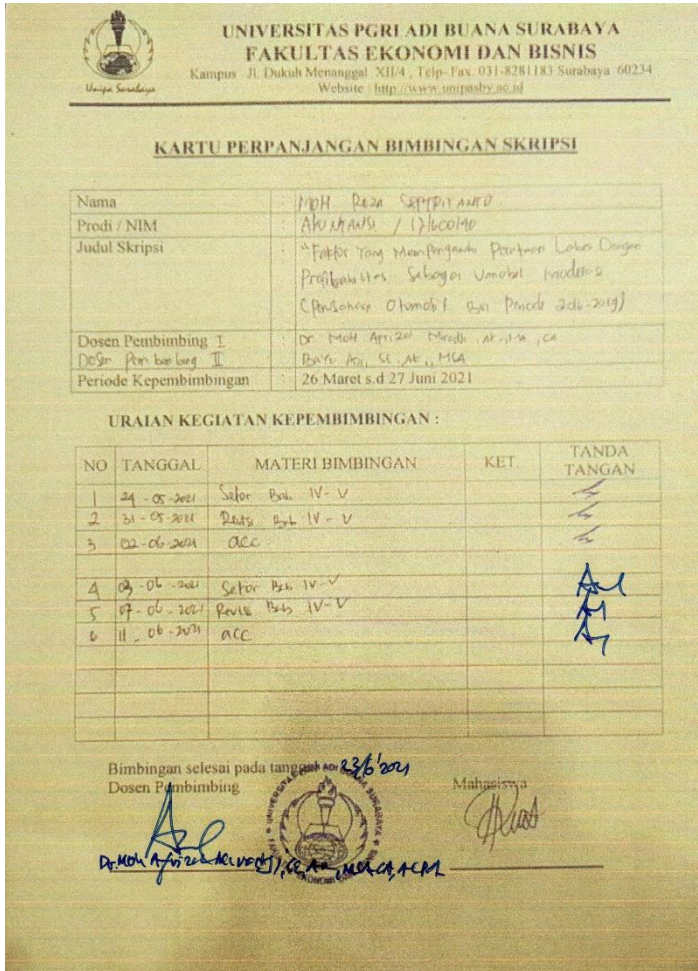 UNIVERSITAS PGRI ADI BUANA SURABAYA
FAKULTAS EKONOMI DAN BISNIS
Kampus : Jl. Dukuh Menanggal XII/4 , Telp- Fax. 031-8281183 Surabaya 60234
Website : http://www.unipasby.ac.id
Unipa Surabaya
KARTU PERPANJANGAN BIMBINGAN SKRIPSI
Nama : MOH REZA SEPTRIYANTO
Prodi / NIM : AKUNTANSI /
Judul Skripsi : "Faktor Yang Mempengaruhi Laba Dengan
Profitabilitas Sebagai Variabel Moderasi
(Perusahaan Otomotif Bei Periode 2016-2019)
Dosen Pembimbing I : Dr Moh Afrizal Miradji, Ak, CA
Dosen Pembimbing II : Bayu Adi, SE., Ak., MSA
Periode Kepembimbingan : 26 Maret s.d 27 Juni 2021
URAIAN KEGIATAN KEPEMBIMBINGAN :
NO TANGGAL MATERI BIMBINGAN KET. TANDA TANGAN
1 29-05-2021 Setor Bab IV-V
2 31-05-2021 Revisi Bab IV-V
3 02-06-2021 acc
4 03-06-2021 Setor Bab IV-V
5 07-06-2021 Revisi Bab IV-V
6 11-06-2021 acc
Bimbingan selesai pada tanggal 23/6/2021
Dosen Pembimbing Mahasiswa
Dr. Moh Afrizal Miradji, SE, Ak,